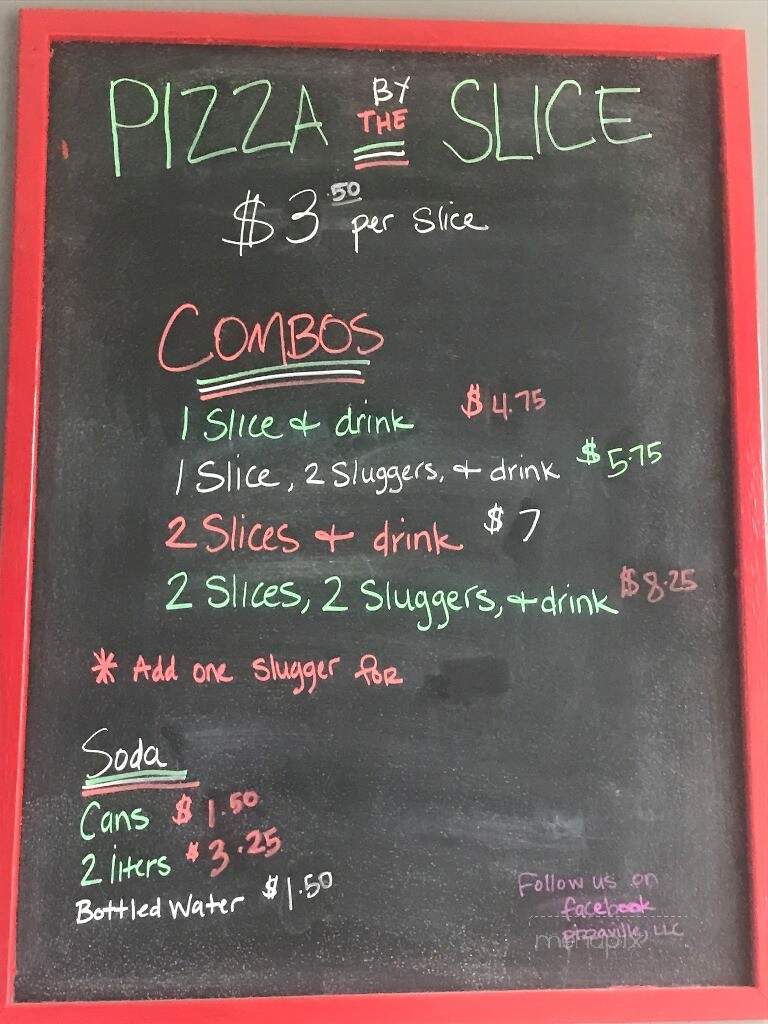 PIZZA BY THE SLICE
$3.50 per slice
COMBOS
1 Slice & drink $4.75
1 Slice, 2 Sluggers, & drink $5.75
2 Slices & drink $7
2 Slices, 2 Sluggers, & drink $8.25
* Add one slugger for
Soda
Cans $1.50
2 liters $3.25
Bottled Water $1.50
Follow us on
facebook
pizzaville, LLC
menupix